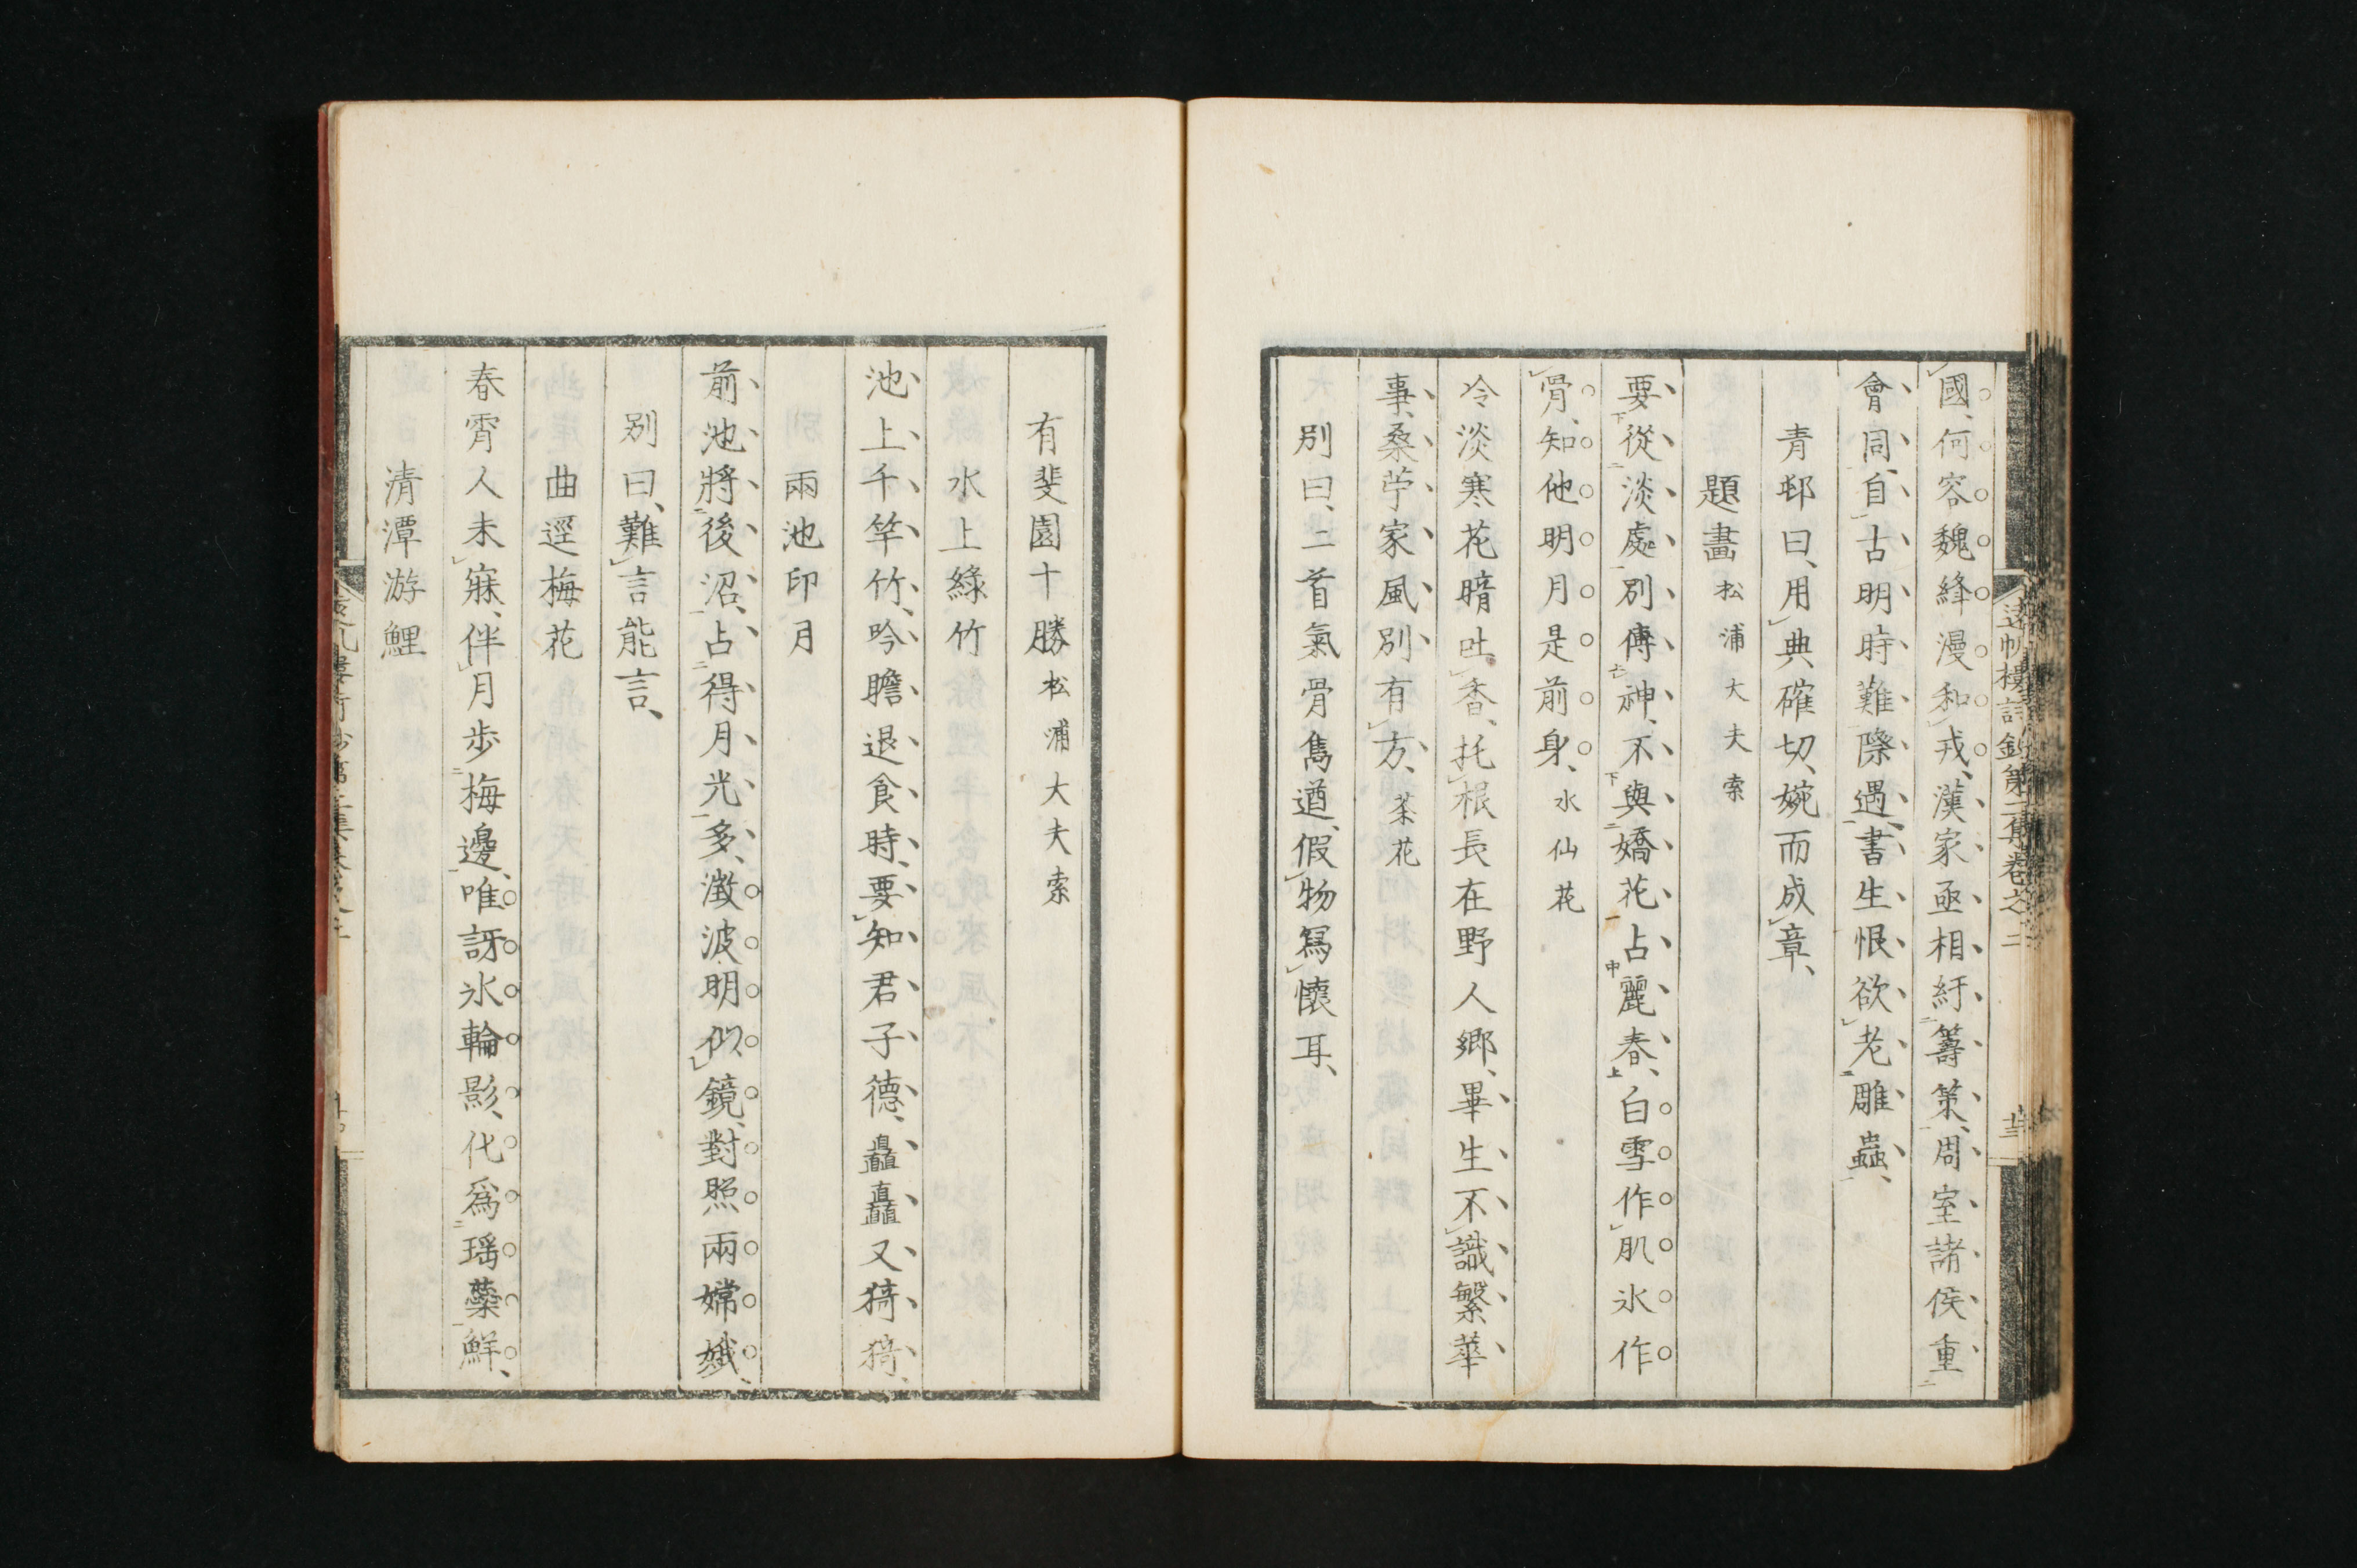 國何容魏絳漫和戎、漢家亟相紆籌策、周室諸侯重
會同、自古明時難際遇、書生恨欲老雕蟲、
青邨曰、用典確切、婉而成章、
題畫 松浦大夫索
要從淡處別傳神、不與嬌花占麗春、白雪作肌氷作
骨、知他明月是前身、水仙花
冷淡寒花暗吐香、托根長在野人鄉、畢生不識繁華
事、桑苧家風別有方、茶花
別曰、二首氣骨雋遒、假物寫懷耳、
遠帆樓詩鈔第二集卷之二
有斐園十勝 松浦大夫索
水上綠竹
池上千竿竹、吟瞻退食時、要知君子德、矗矗又猗猗、
兩池印月
前池將後沼、占得月光多、澂波明似鏡、對照兩嫦娥、
別曰、難言能言、
曲逕梅花
春霄人未寐、伴月步梅邊、唯訝氷輪影、化爲瑶蘂鮮、
清潭游鯉